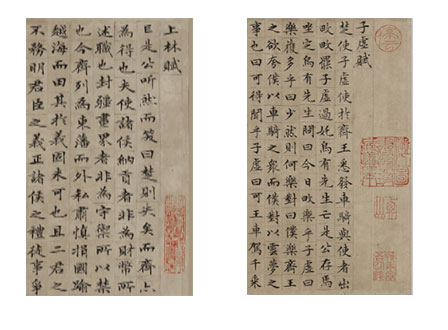 子虛賦
楚使子虛使於齊王悉發車騎與使者出
畋畋罷子虛過奼烏有先生亡是公存焉
坐定烏有先生問曰今日畋樂乎子虛曰
樂獲多乎曰少然則何樂對曰僕樂齊王
之欲夸僕以車騎之衆而僕對以雲夢之
事也曰可得聞乎子虛曰可王車駕千乘
上林賦
亡是公听然而笑曰楚則失矣而齊亦
為得也夫使諸侯納貢者非為財幣所
述職也封疆畫界者非為守禦所以禁
也今齊列為東藩而外私肅慎捐國踰
越海而田其於義固未可也且二君之
不務明君臣之義正諸侯之禮徒事爭